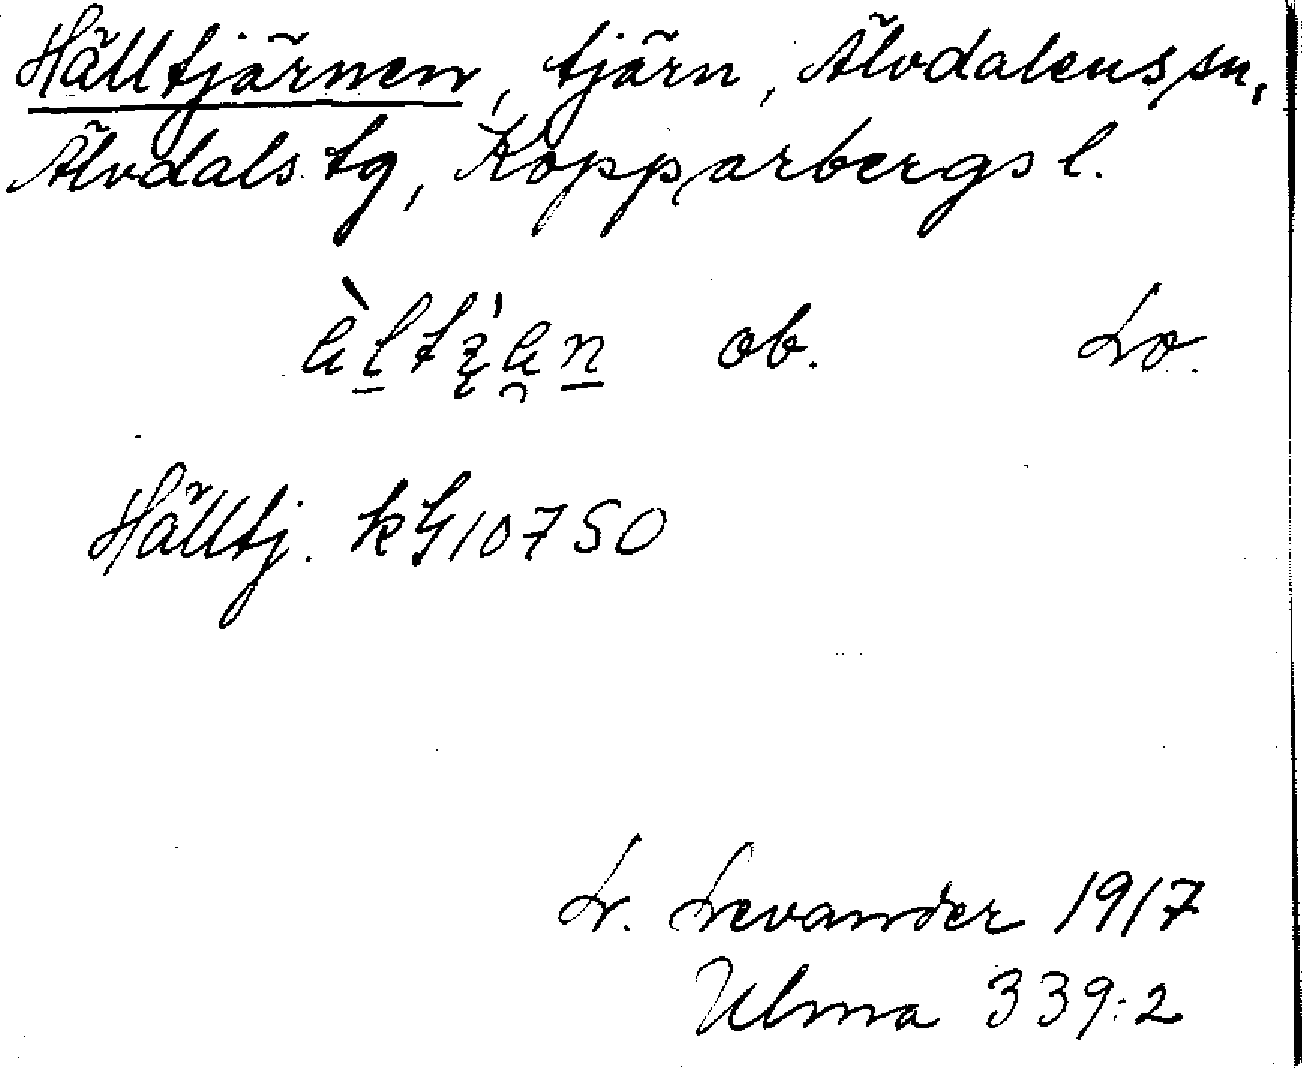 Hälltjärnen, tjärn, Älvdalens sn,
Älvdals tg, Kopparbergs l.
ob. Lo.
Hälltj. kG 10750
L. Levander 1917
Ulma 339:2